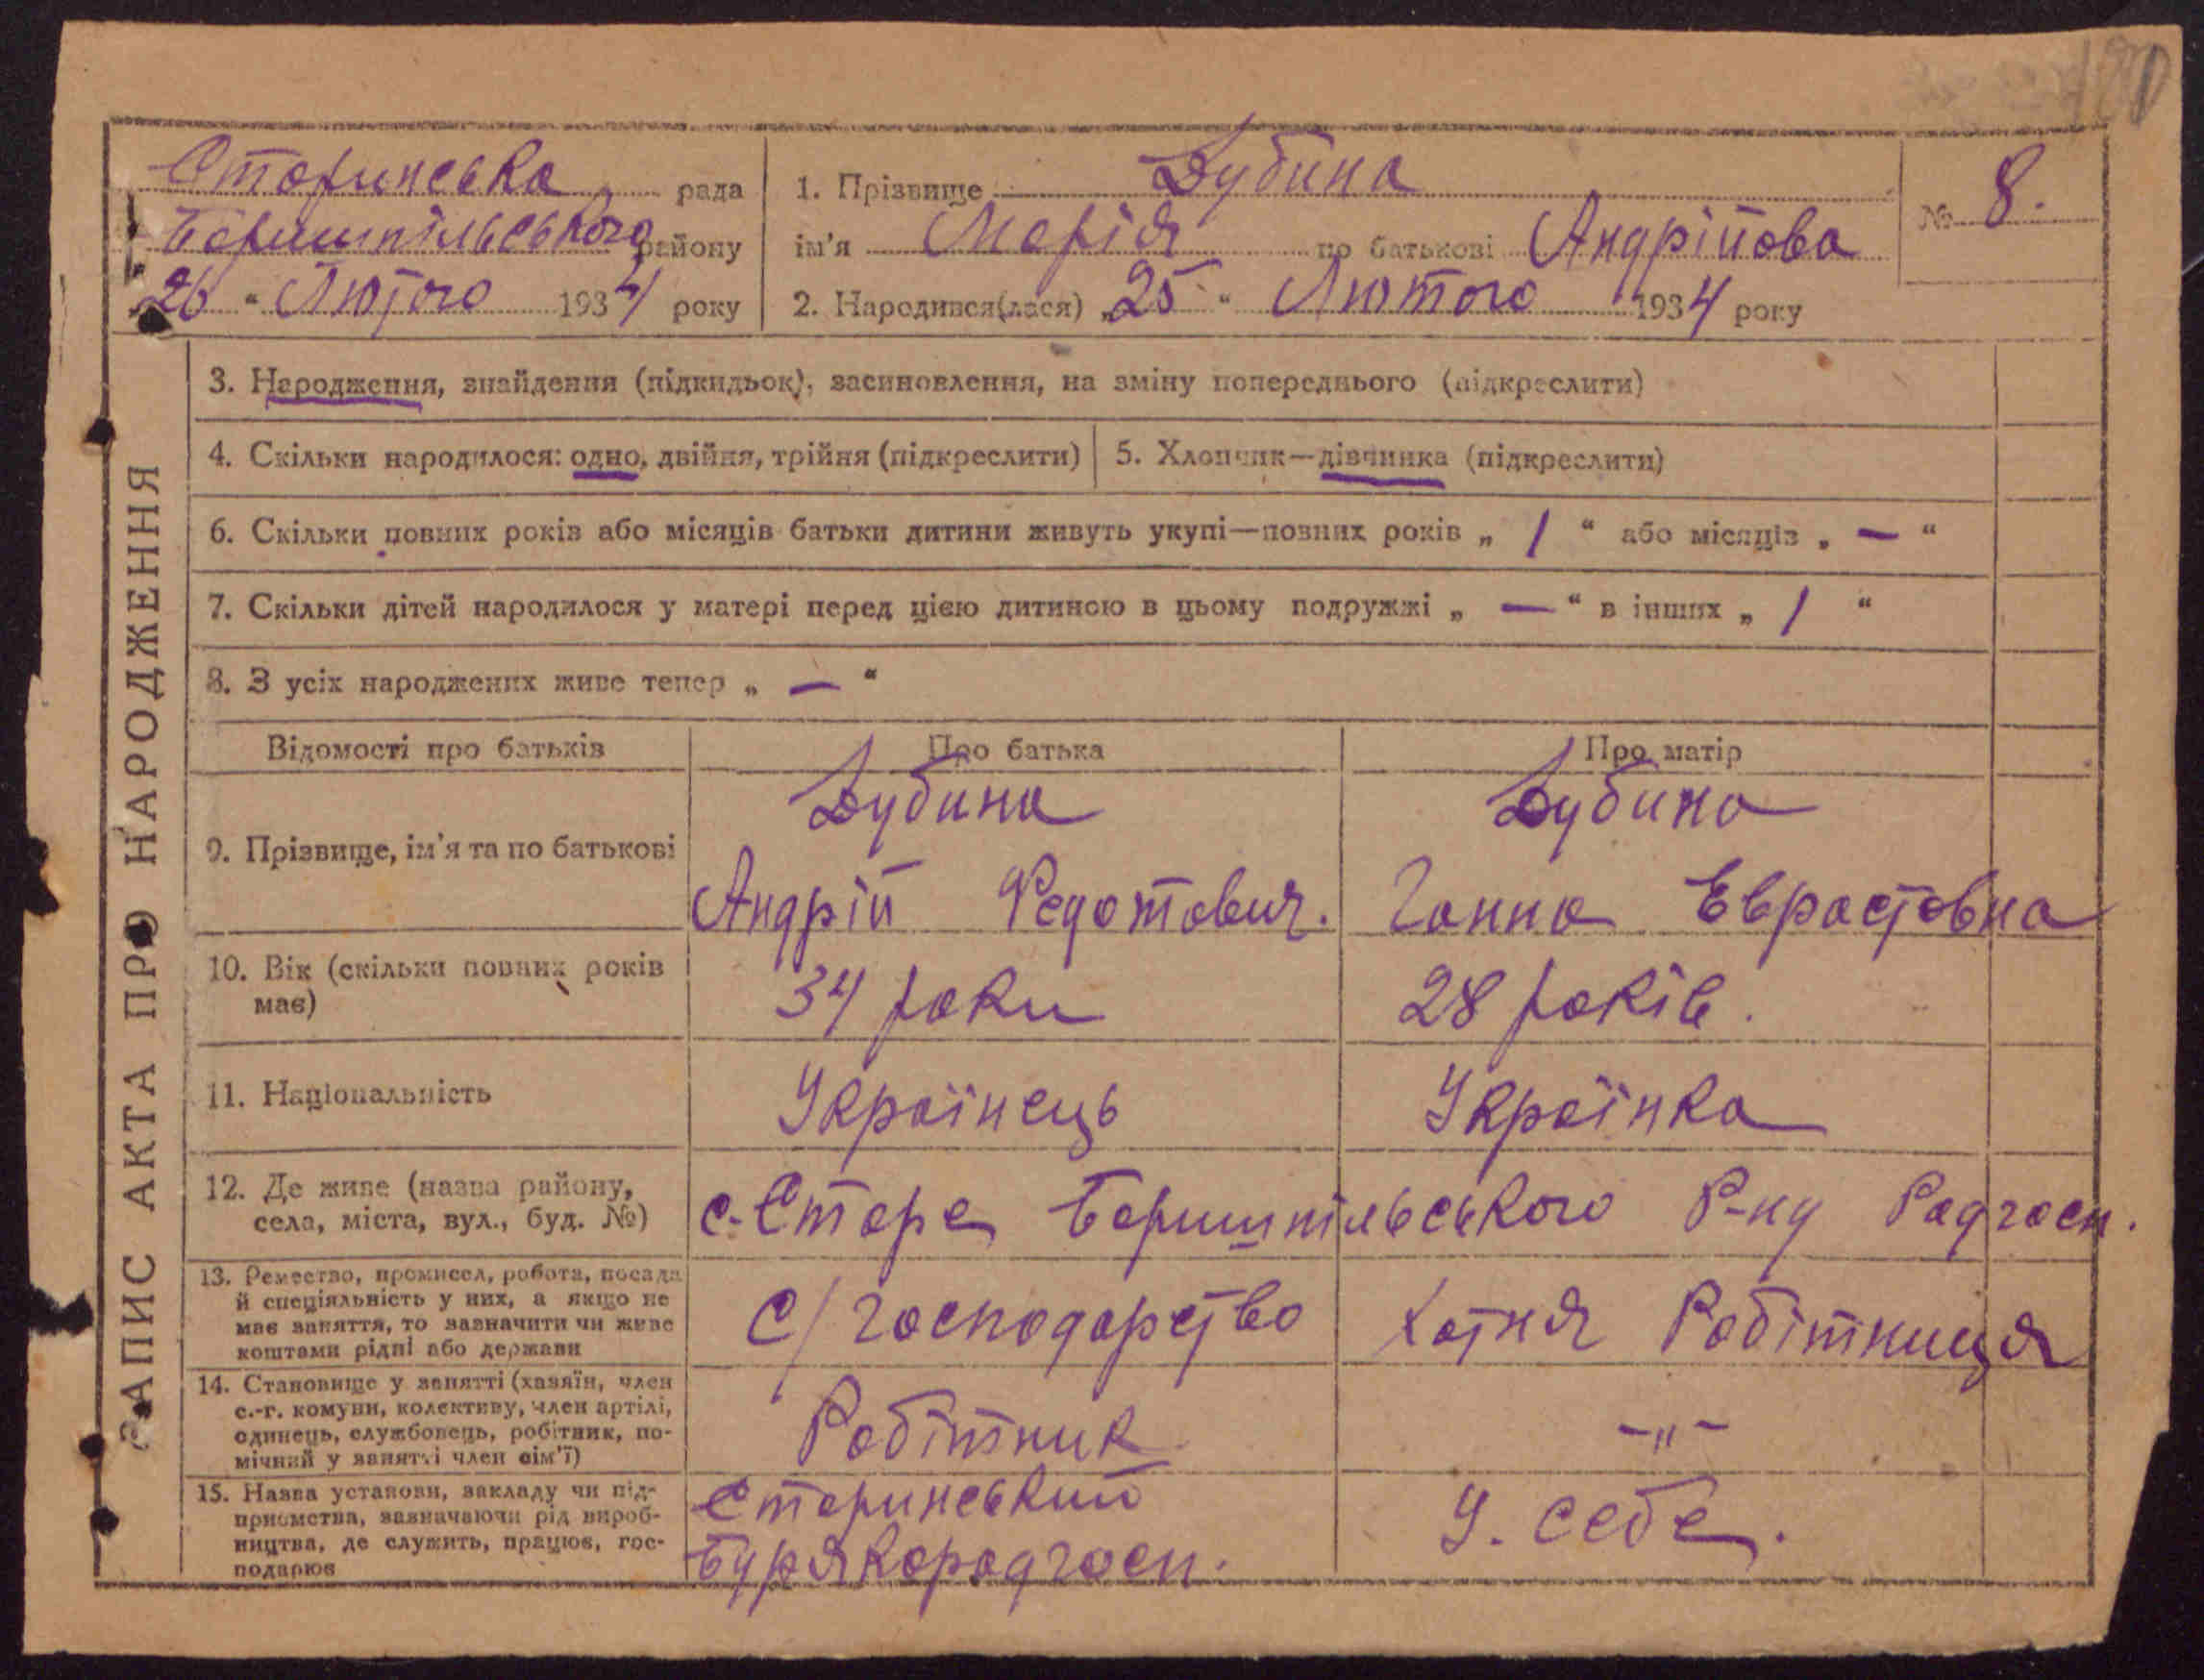 Старинська рада
Боришпільського району
26 " Лютого 1934 року
1. Прізвище Дубина
ім'я Марія по батькові Андрійова
2. Народився(лася) „25" Лютого 1934 року
№ 8.
ЗАПИС АКТА ПРО НАРОДЖЕННЯ
3. Народження, знайдення (підкидьок), засиновлення, на зміну попереднього (підкреслити)
4. Скільки народилося: одно, двійня, трійня (підкреслити)
5. Хлопчик—дівчинка (підкреслити)
6. Скільки повних років або місяців батьки дитини живуть укупі—повних років „ 1 " або місяців „ — "
7. Скільки дітей народилося у матері перед цією дитиною в цьому подружжі „ — " в інших „ 1 "
8. З усіх народжених живе тепер „ — "
Відомості про батьків Про батька Про матір
9. Прізвище, ім'я та по батькові
Дубина
Андрій Федотович.
Дубина
Ганна Еврастовна
10. Вік (скільки повних років
має)
34 роки
28 років.
11. Національність
Українець
Українка
12. Де живе (назва району,
села, міста, вул., буд. №)
с. Старе Боришпільського Р-ну Радгосп.
13. Ремество, промисел, робота, посада
й спеціяльність у них, а якщо не
має заняття, то зазначити чи живе
коштами рідні або держави
С/господарство
Хатня Робітниця
14. Становище у занятті (хазяїн, член
с.-г. комуни, колективу, член артілі,
одинець, службовець, робітник, по-
мічний у занятті член сім'ї)
Робітник
-"-
15. Назва установи, закладу чи під-
приємства, зазначаючи рід вироб-
ництва, де служить, працює, гос-
подарює
Старинський
Бурякорадгосп.
У. себе.